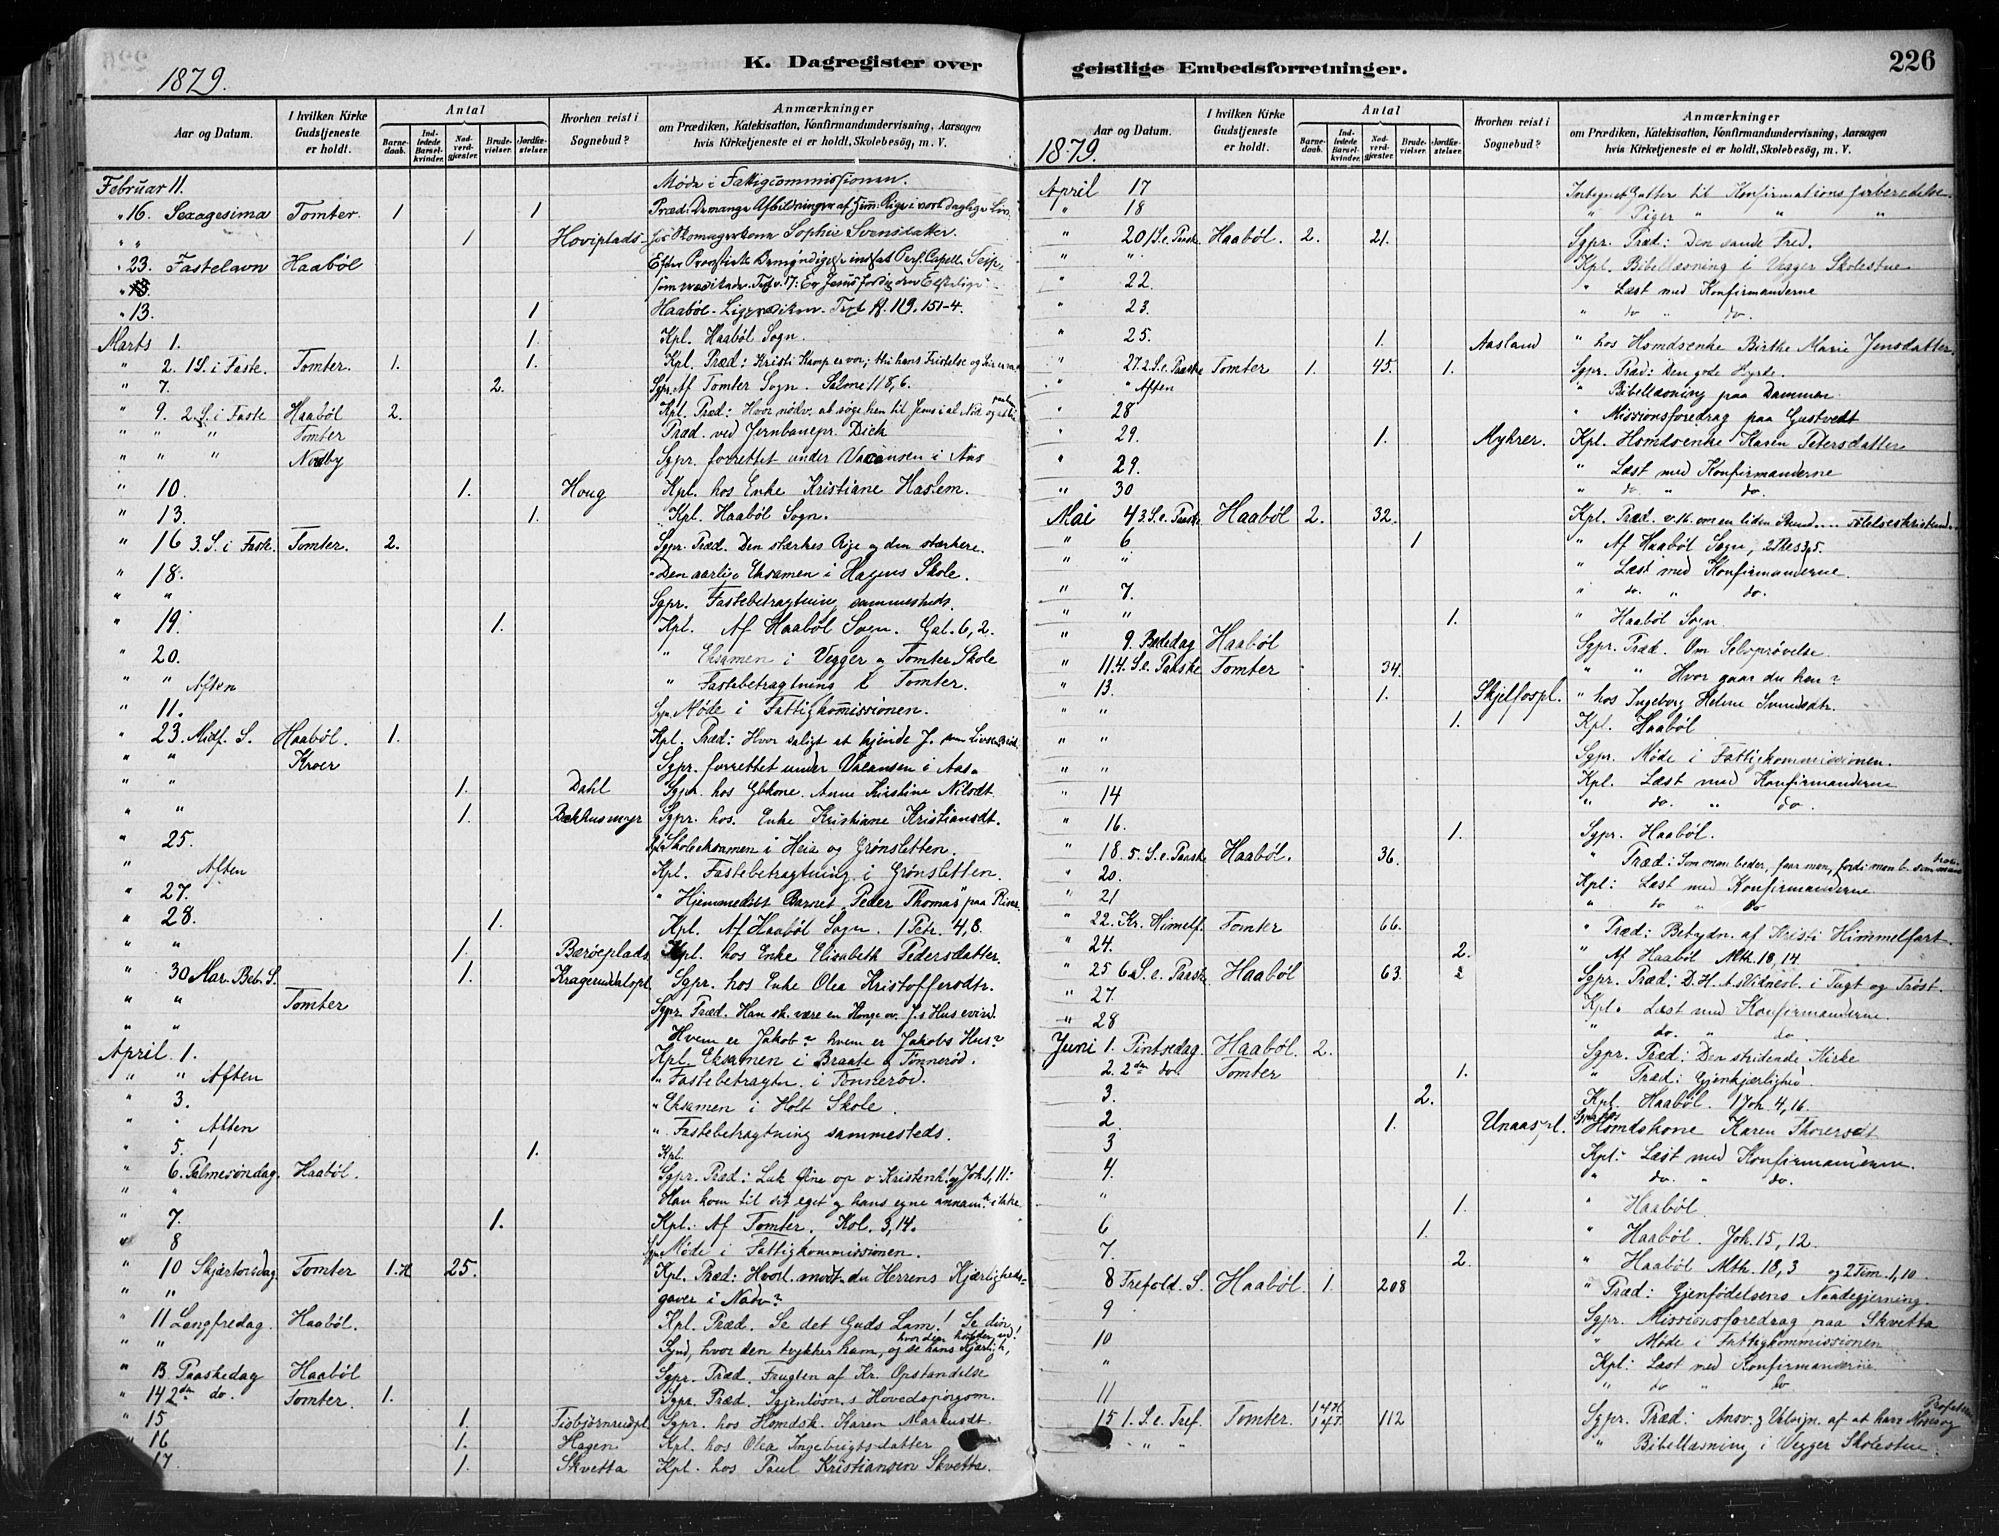 K. Dagregister over
1879.
Aar og Datum.
I hvilken Kirke Gudstjeneste er holdt.
Antal
Barnedaab.
Indledede Barselkvinder.
Nadverdgjester
Brudevielser.
Jordfæstelser.
Hvorhen reist i Sognebud?
Anmærkninger
om Prædiken, Katekisation, Konfirmandundervisning, Aarsagen
hvis Kirketjeneste ei er holdt, Skolebesøg, m. V.
Februar 11. Møde i Fattigcommissionen.
" 16. Sexagesima Tomter 1 1 Præd: De mange Afbildninger af Him: Rige i vort daglige Liv.
" " 1 Hoviplads for Skomagerkone Sophie Svensdatter
" 23. Fastelavn Haabøl
" 13. 1 Haabøl. Ligprædiken. Text 119. 151-4.
Marts 1. 1. Kpl. Haabøl Sogn.
" 2. 1 S. i Faste. Tomter. 1. 1. Kpl. Præd: Kristi Kamp er vor; thi hans Fristelse og Seir er vor
" 7. 2. Sgpr. Af Tomter Sogn. Salme 118, 6.
" 9. 2 S. i Faste Haabøl 2. Kpl. Præd: Hvor nødv. at søge hen til Jesus i al Nød
" " " Tomter Præd. ved Jernbanepr. Dick
" " " Nordby Sgpr. forrettet under Vacansen i Aas
" 10. 1. Houg Kpl. hos Enke Kristiane Haslem.
" 13. 1. Kpl. Haabøl Sogn.
" 16 3. S. i Faste. Tomter. 2. Sgpr. Præd. Den stærkes Rige og den stærkere.
" 18. " Den aarlige Eksamen i Hagens Skole.
" " Sgpr. Fastebetragtning sammesteds.
" 19. 1. Kpl. Af Haabøl Sogn. Gal. 6, 2.
" 20. " Eksamen i Vegger og Tomter Skole
" " Aften " Fastebetragtning i Tomter.
" 11. Sgpr. Møde i Fattigkommissionen.
" 23. Midf. S. Haabøl. 1. Kpl. Præd: Hvor saligt at kjende J. som Livsens Brød.
" " Kroer Sgpr. forrettet under Vacansen i Aas.
" " 1. Dahl Sgpr. hos Gbkone Anne Kirstine Nilsdt.
" " 1. Bækhusmyr Sgpr. hos. Enke Kristiane Kristiansdt.
" 25. Skoleeksamen i Heia og Grønsletten.
" Aften Kpl. Fastebetragtning i Grønsletten.
" 27. " Hjemmedøbt Barnet Peder Thomas paa
" 28. 1. Kpl. Af Haabøl Sogn. 1 Petr. 4, 8.
" " 1. Barøeplads Kpl. hos Enke Elisabeth Pedersdatter
" 30 Mar. Beb. S. 1. Kragerudalspl. Sgpr. hos Enke Olea Kristoffersdtr.
" " Tomter Sgpr. Præd. Han sk. være en Konge ov. J.s Hus evind.
" " Hvem er Jakob? hvem er Jakobs Hus?
April 1. Kpl. Eksamen i Braate og Tonnerød.
" " Aften " Fastebetragtn. i Tonnerød.
" 3. " Eksamen i Holt Skole.
" " Aften " Fastebetragtning sammesteds.
" 5. 1. Kpl.
" 6. Palmesøndag Haabøl. Sgpr. Præd: Luk Øine op o Kristenh! og Joh. 1, 11:
" Han kom til sit eget og hans egne annam. h. ikke
" 7. 1. Kpl: Af Tomter. Kol. 3, 14.
" 8 Sgpr. Møde i Fattigkommissionen.
" 10 Skjærtorsdag Tomter 1. H 25. Kpl. Præd: Hvorl. modt. du Herrens Kjærligheds-
" " gaver i Nadv?
" 11 Langfredag Haabøl. Kpl. Præd. Se det Guds Lam! Se din
" " Synd, hvor den trykker ham, og se hans Kjærligh,
" 13. Paaskedag Haabøl Sgpr. Præd. Frugten af Kr. Opstandelse
" 14 2den do. Tomter. 1. Sgpr. Præd. Igjenløsn.s Hovedspørgsm.
" 15 1. Tisbjørnrudpl. Sgpr. hos Hmdsk. Karen Markusdt.
" 16 1. Hagen Kpl. hos Olea Ingebrigtsdatter
17 1. Skvetta Kpl. hos Paul Kristiansen Skvetta.
geistlige Embedsforretninger.
226
1879.
Aar og Datum.
I hvilken Kirke Gudstjeneste er holdt.
Antal
Barnedaab.
Indledede Barselkvinder.
Nadverdgjester
Brudevielser.
Jordfæstelser.
Hvorhen reist i Sognebud?
Anmærkninger
om Prædiken, Katekisation, Konfirmandundervisning, Aarsagen
hvis Kirketjeneste ei er holdt, Skolebesøg, m. V.
April 17 Indtegnet Gutter til Konfirmationsforberedelse.
" 18 " Piger " " "
" 20 1 S. e. Paaske Haabøl. 2. 21. Sgpr. Præd: Den sande Fred.
" " Kpl. Bibellæsning i Vegger Skolestue
" 22. " Læst med Konfirmanderne
" 23. " do " do.
" 25. 1. Aasland " hos Hsmdsenke Birthe Marie Jensdatter.
" 27. 2. S. e. Paaske Tomter 1. 45. 1. Sgpr. Præd: Den gode Hyrde.
" " Aften " Bibellæsning paa Dammen
" 28 " Missionsforedrag paa Gustvedt
" 29. 1. Myhrer. Kpl. Hsmdsenke Karen Petersdatter
" 29. " Læst med Konfirmanderne
" 30 " do. " do.
Mai 4 3. S. e. Paaske Haabøl 2. 32. Kpl. Præd. v. 16. om en liden Stund...
" 6 1 " Af Haabøl Sogn, 2 Thes 3,5.
" " " Læst med Konfirmanderne.
" 7. " do. " do.
" " 1. " Haabøl Sogn.
" 9. Bededag Haabøl Sgpr. Præd. Om Selvprøvelse
" 11 4. S. e. Paaske Tomter 34. " " Hvor gaar du hen?
" 13. 1. Skjelfospl. " hos Ingeborg Helene Svendsdtr.
" " 1. Kpl. Haabøl
" " Sgpr. Møde i Fattigkommissionen.
" " Kpl. Læst med Konfirmanderne
" 14 " do. " do
" 16. 1. Sgpr. Haabøl.
" 18. 5. S. e. Paaske Haabøl. 36. " Præd: Som man beder, faar man, fordi man b. som man
" 20. Kpl: Læst med Konfirmanderne
" 21 " do " do
" 22. Kr. Himmelf. Tomter 66. " Præd: Betydn. af Kristi Himmelfart.
" 24. 2. " Af Haabøl Mth. 18, 14.
" 25 6 S. e. Paaske Haabøl 63. 2 Sgpr. Præd: D. H. A.s Vidnesb. i Tugt og Trøst.
" 27. Kpl. Læst med Konfirmanderne.
" 28 " do. " do.
Juni 1. Pintsedag Haabøl. 2. Sgpr. Præd: Den stridende Kirke
2. 2den do. Tomter 1. " Præd: Gjenkjærlighed
3. 2. Kpl. Haabøl. 1 Joh. 4, 16.
2 1. Unaaspl. Sgpr. hos Hsmdskone Karen Thorersdt
3 Kpl: Læst med Konfirmanderne.
4. " do. " do.
" 1. " Haabøl.
6 1. " Haabøl. Joh. 15, 12.
7. 2. " Haabøl Mth. 18, 3 og 2 Tim. 1, 10.
8 Trefold. S. Haabøl 1. 208 " Præd: Gjenfødelsens Naadegjerning.
9 Sgpr. Missionsforedrag paa Skvetta
10 " Møde i Fattigkommissionen
" Kpl: Læst med Konfirmanderne
11 " do " do
15 1. S. e. Tref. Tomter. 112 Sgpr. Præd: Ansv. og Velsign. af at have Moses og Profeterne
" " " Bibellæsning i Vegger Skolestue.